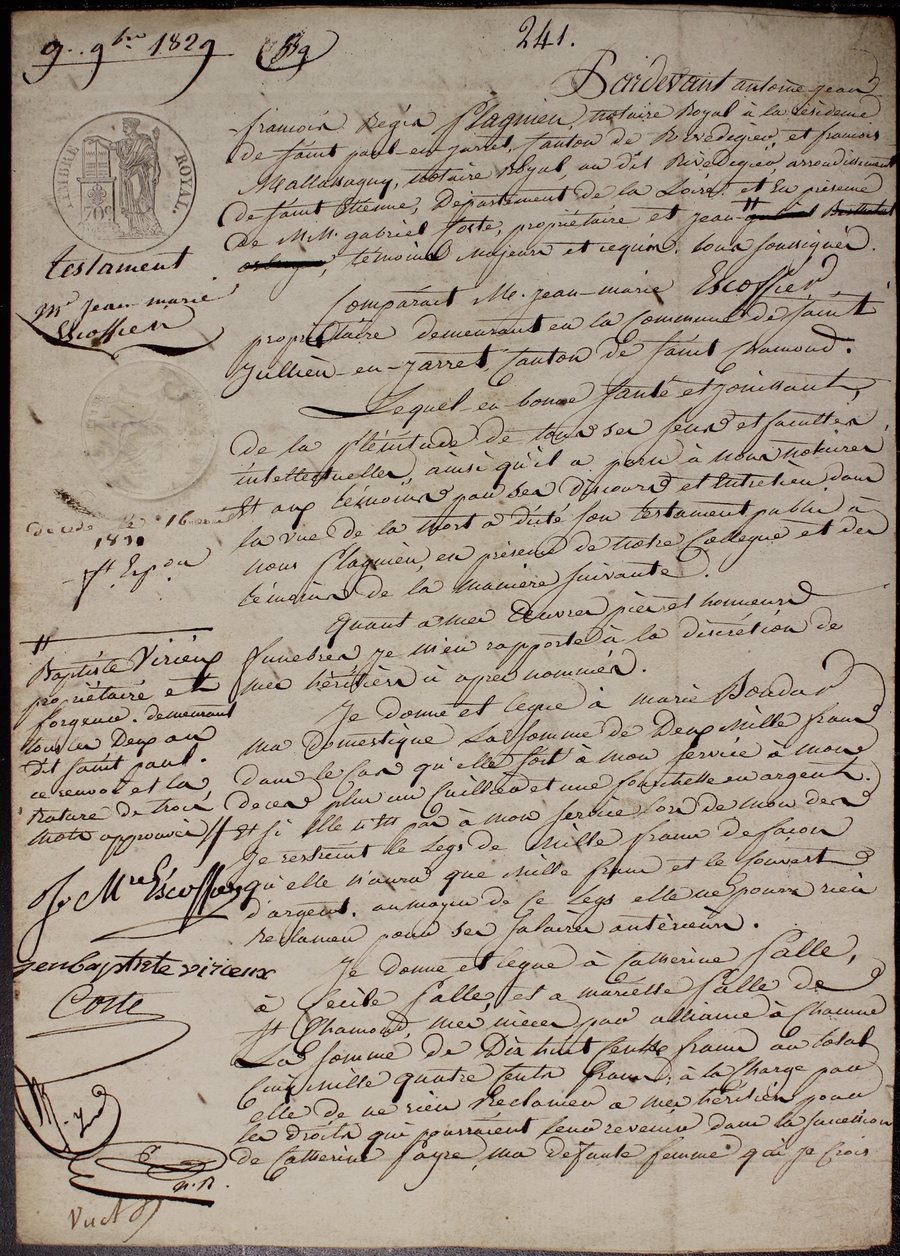 9. 9bre 1829
241.
Pardevant antoine jean
françois Régis Flagnieu, notaire Royal à la résidence
de saint paul-en-jarret, canton de Rivedegier, et françois
notaire Royal, au dit Rivedegier, arrondissement
de saint Etienne, Département de la Loire, et en présence
de M.M. gabriel Coste, propriétaire et jean-
témoins Majeurs et requis, tous soussignés.
Comparait Mr. jean-marie Escoffier
propriétaire demeurant en la Commune de saint
Jullien-en-jarret, Canton de saint Chamond.
Lequel en bonne santé et jouissant,
de la plénitude de tous ses sens et facultés
intellectuelles, ainsi qu'il a paru à nous notaires
et aux témoins par ses discours et entretien dans
la vue de la mort a dicté son testament public à
nous Flagnieu, en présence de notre Collegue et des
témoins de la manière suivante.
Quant a mes œuvres pies et honneurs
funebres je m'en rapporte à la discrétion de
mes héritiers ci après nommés.
Je donne et legue à marie Boudar
ma domestique la somme de Deux Mille francs
dans le cas qu'elle soit à mon service à mon
deces plus un Cuillier et une fourchette en argent.
et si elle n'est pas à mon service lors de mon deces
je restreint le Legs de Mille francs de façon
qu'elle n'aura que mille francs et le Couvert
d'argent. au moyen de ce Legs elle ne pourra rien
reclamer pour ses salaires antérieurs.
Je donne et legue à Catherine Salle,
à Cécile Salle, et a mariette Salle de
St Chamond, mes nieces par alliance à Chacune
La somme de Dix huit Cents francs au total
Cinq Mille quatre Cents francs, à la Charge par
elle de ne rien Reclamer a mes héritiers pour
les droits qui pourraient leur revenir dans la succession
de Catherine fayre, ma défunte femme qui je crois
TIMBRE ROYAL.
70c
testament
Mr jean-marie
Escoffier
décédé le 16
Baptiste Virieux
propriétaire et
forgeur. demeurant
tous les Deux au
dit saint paul.
ce renvoi et la
rature de trois
mots approuvés
J Mrie Escoffier
jean baptiste virieux
Coste
Vu ct